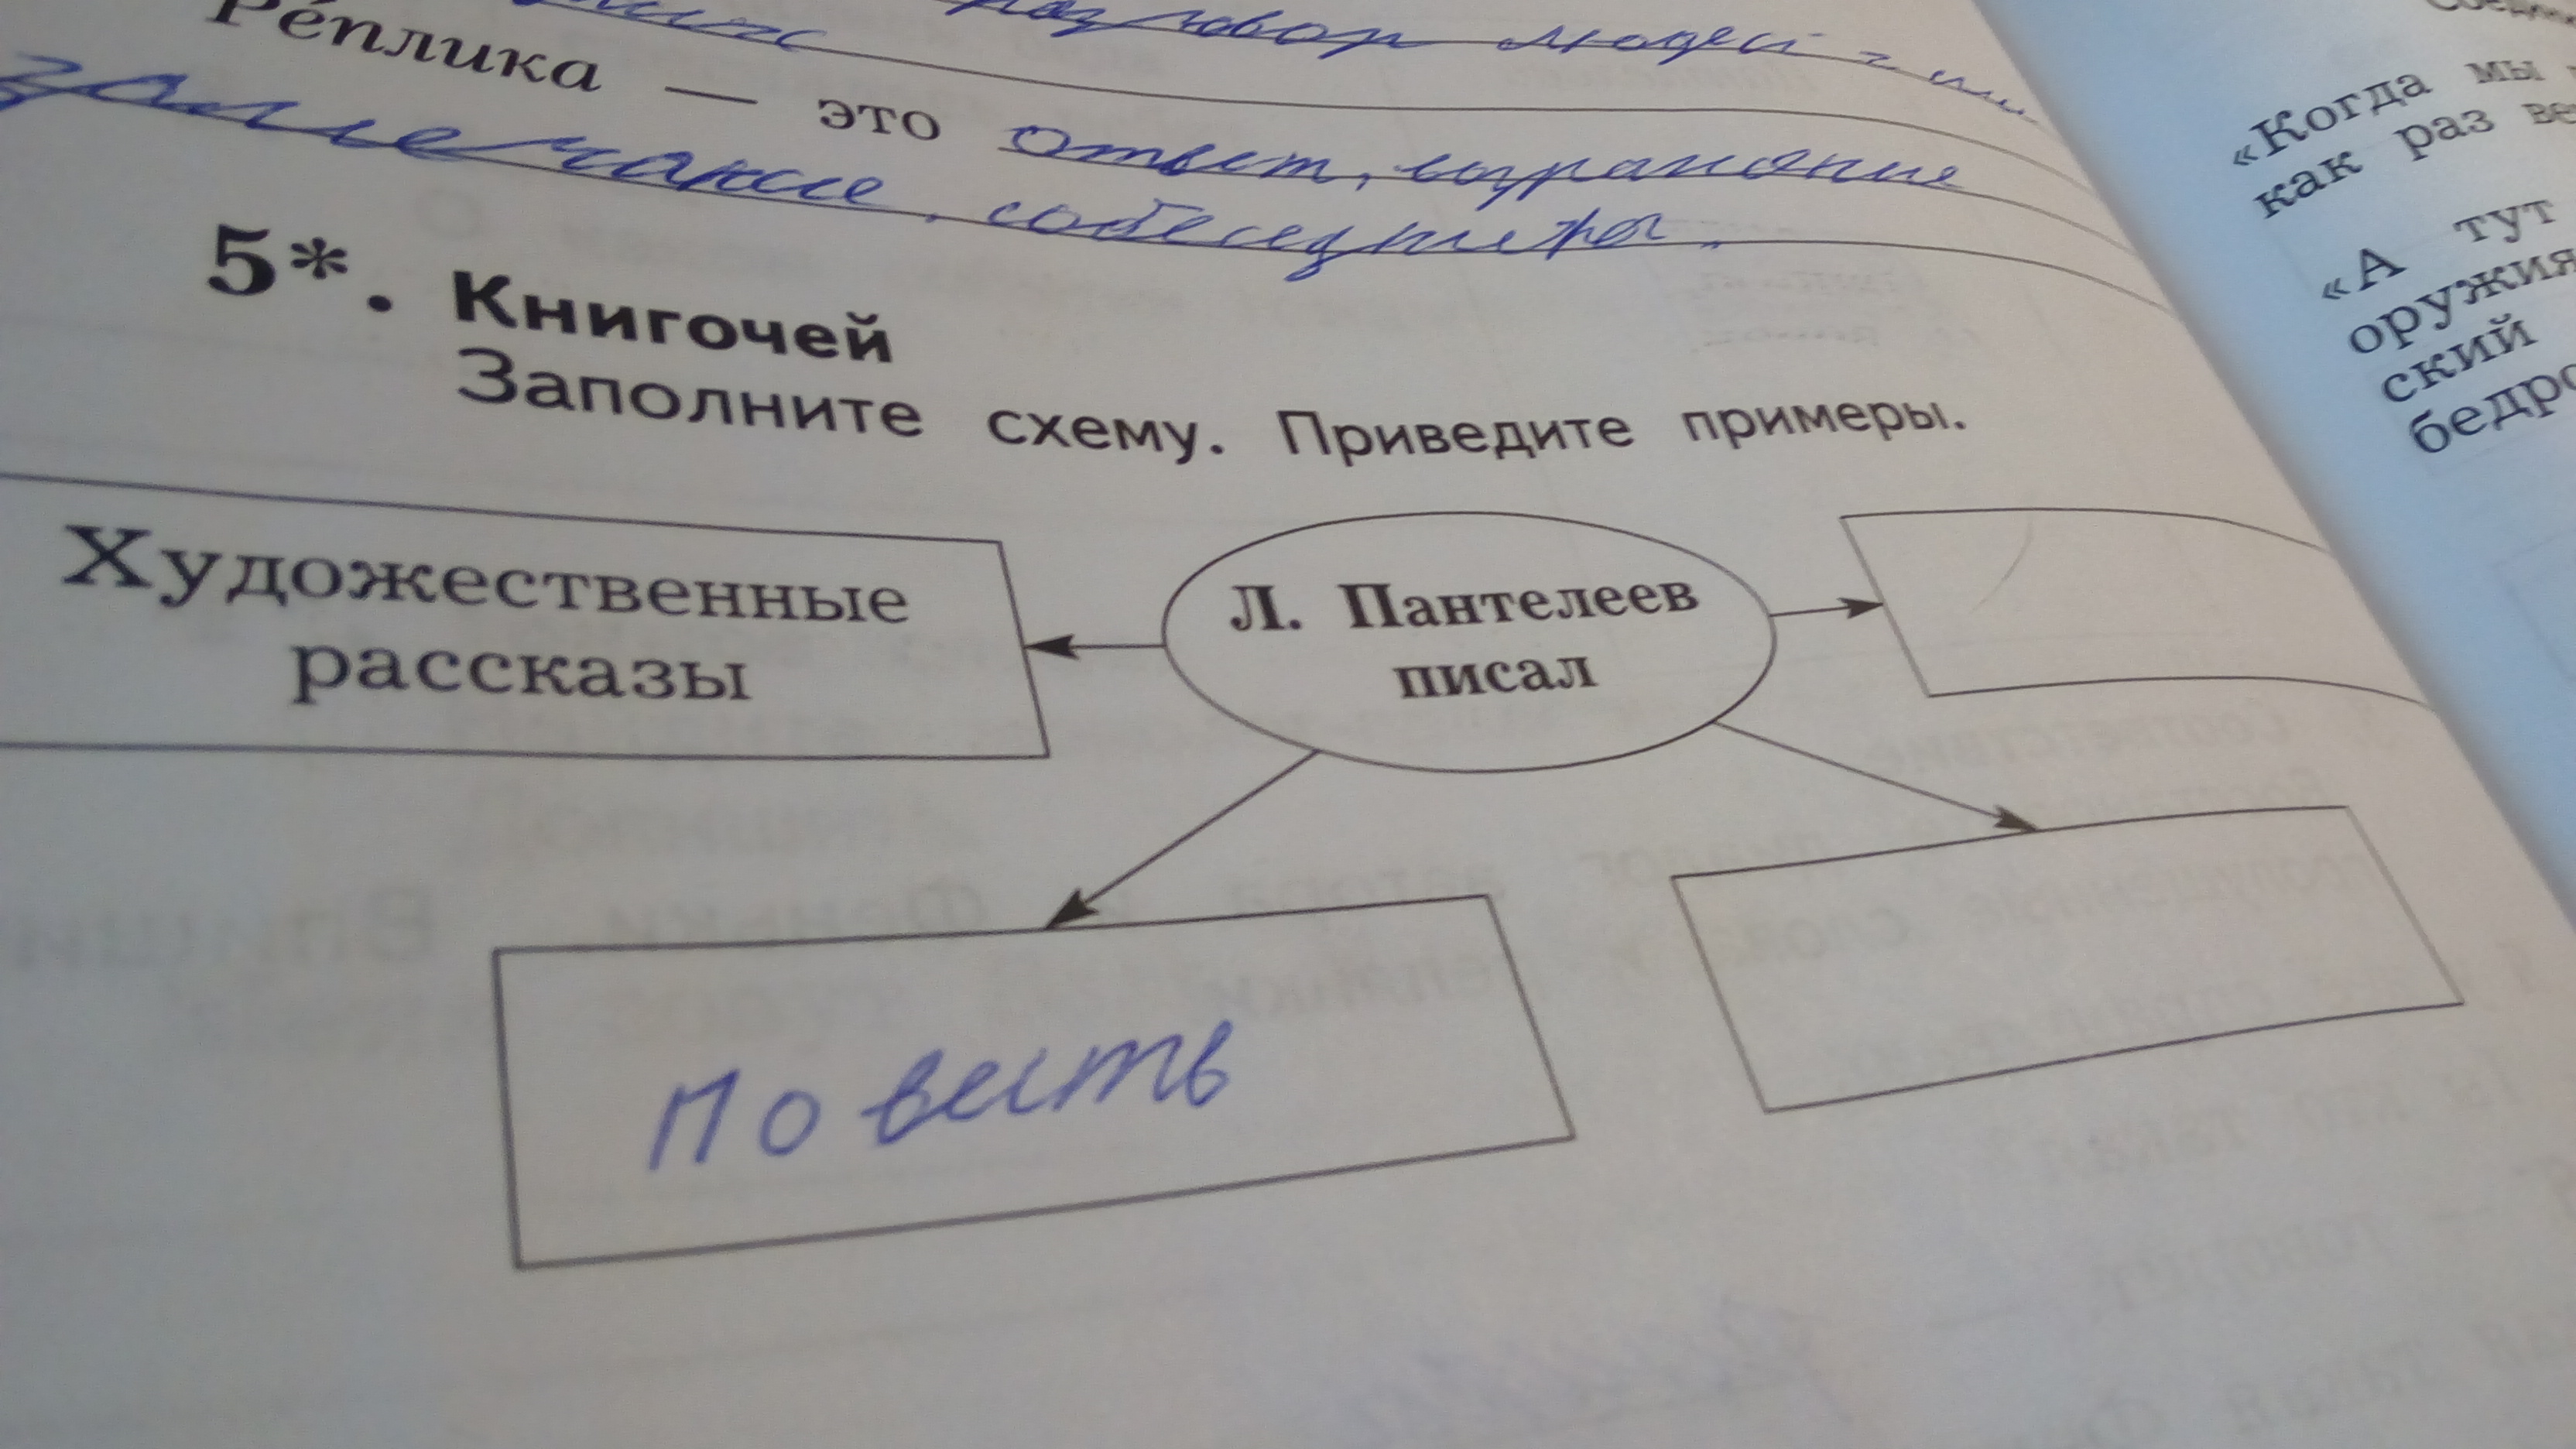 разговор людей
Ре́плика — это ответ, возражение
замечание, собеседника.
5*. Книгочей
Заполните схему. Приведите примеры.
Художественные
рассказы
Л. Пантелеев
писал
Повесть
«Когда мы
как раз
«А тут
оружия
ский
бедро